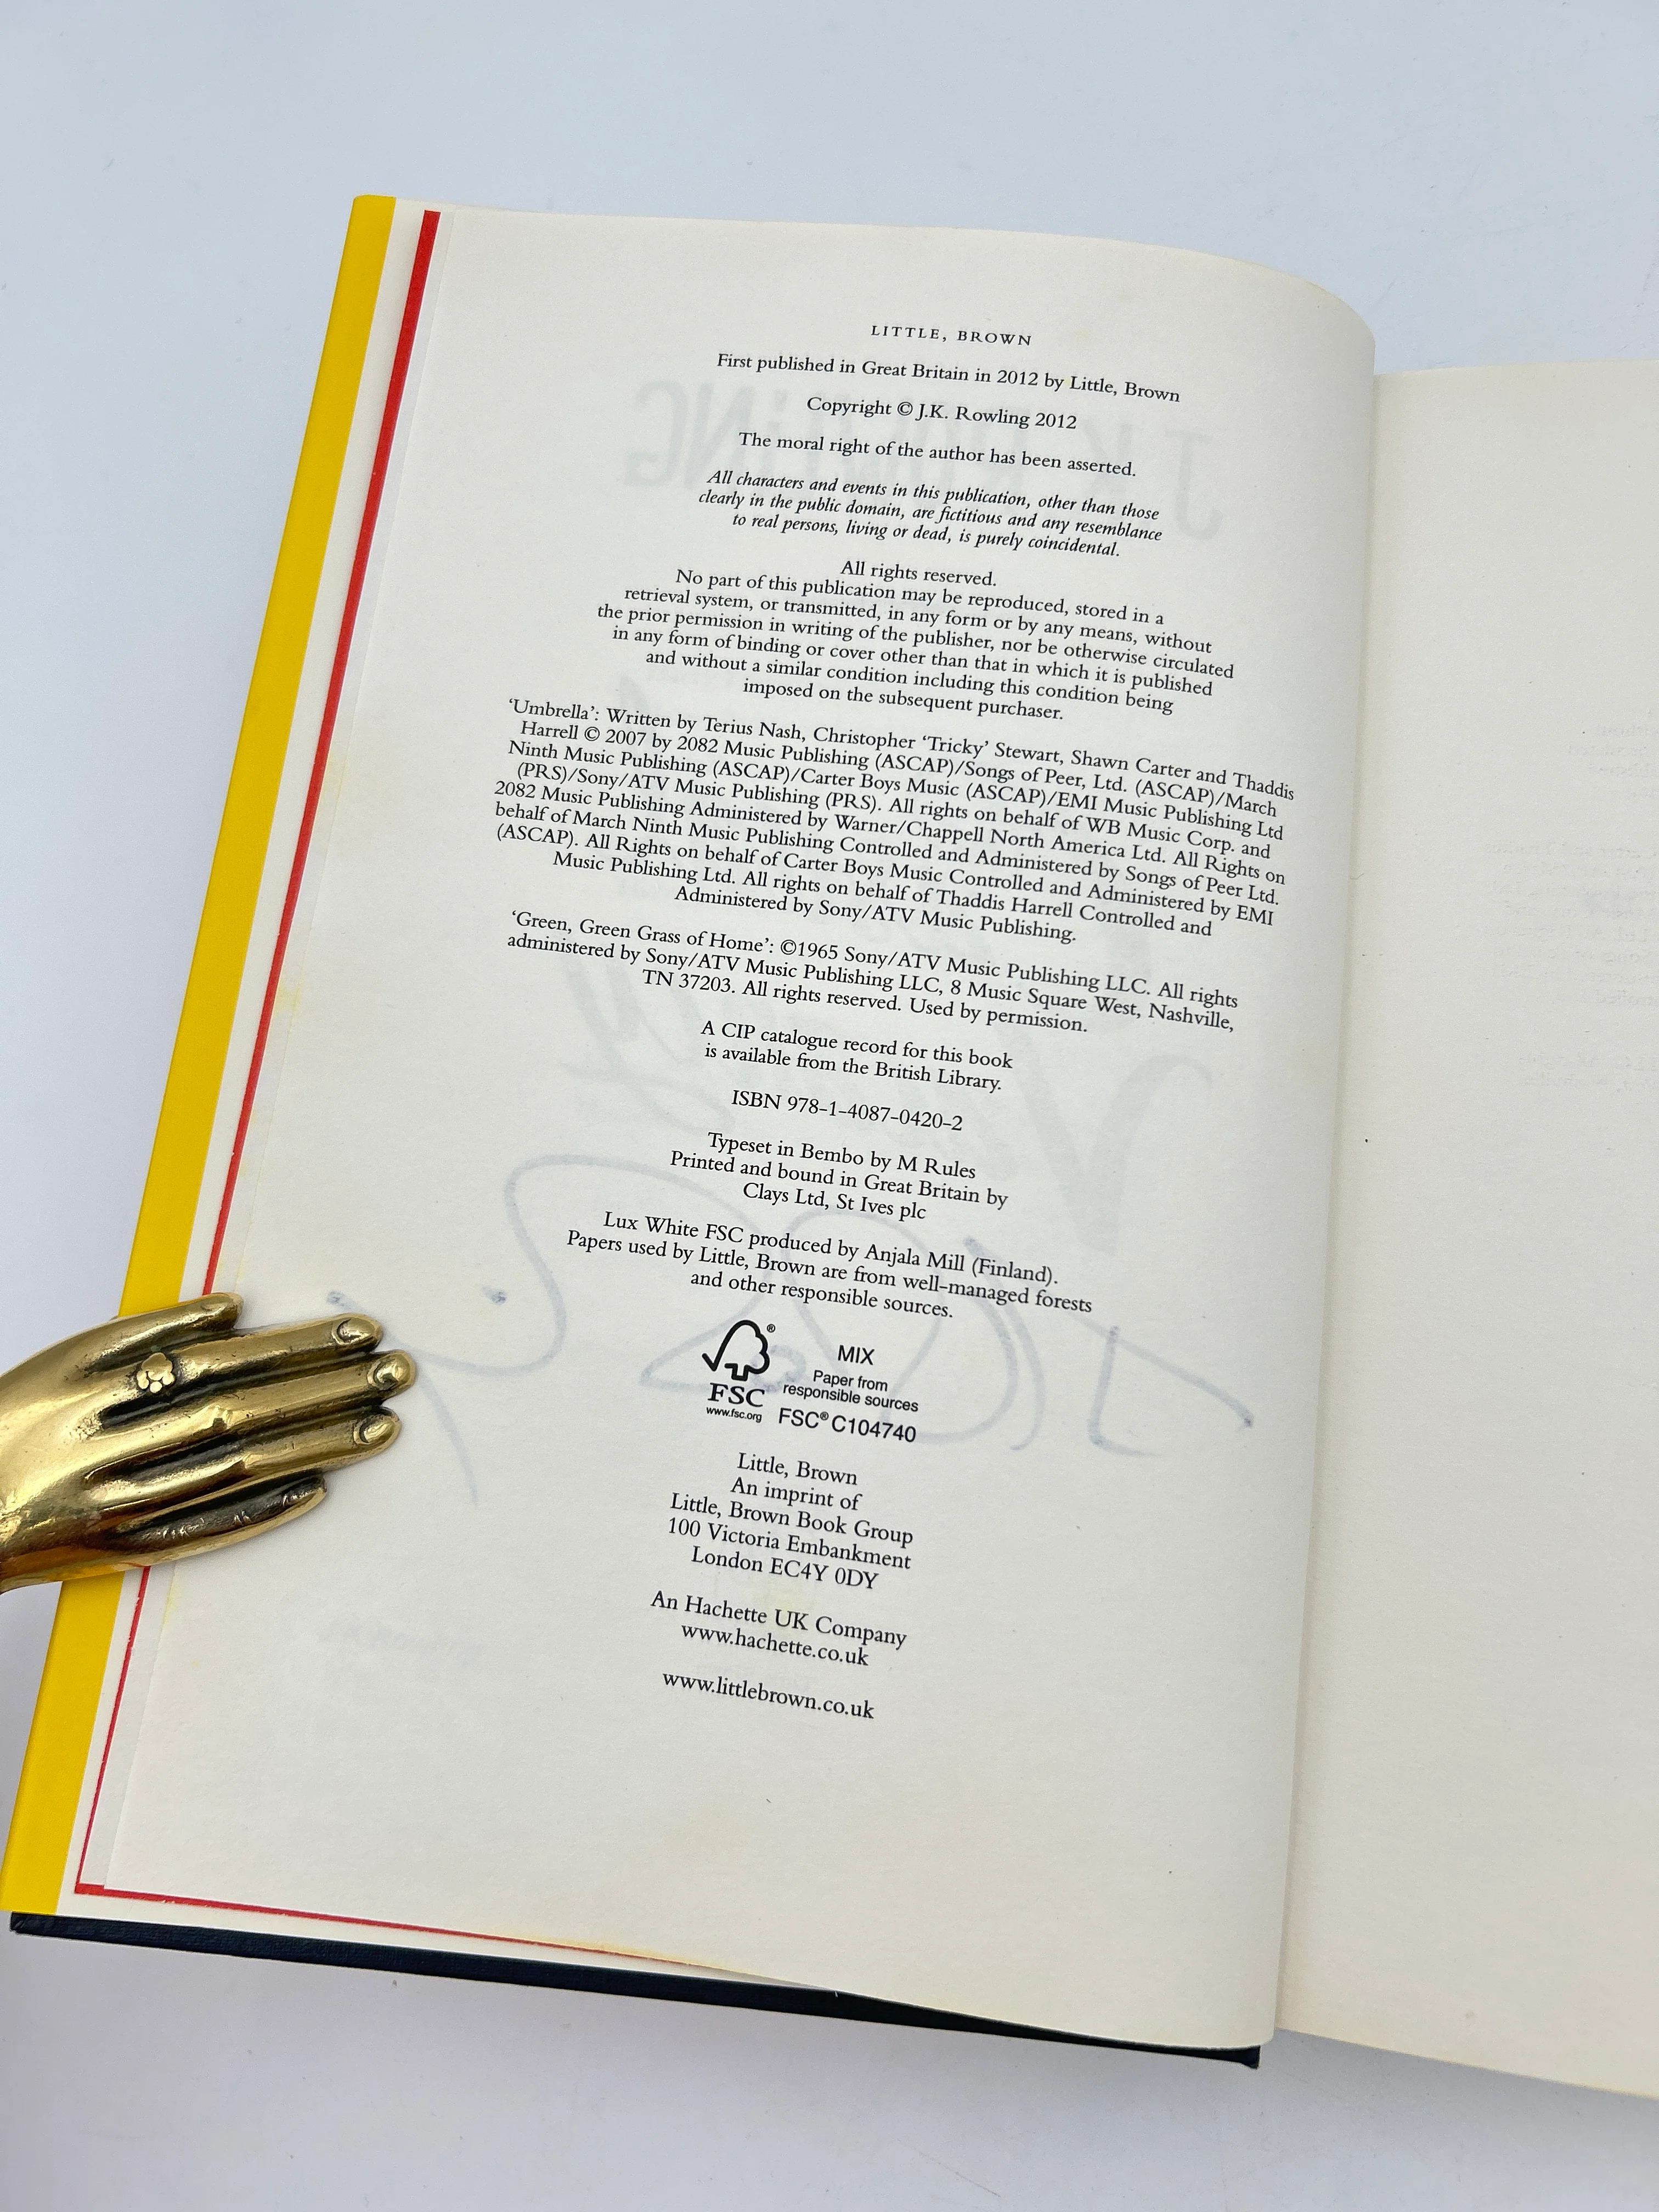 LITTLE, BROWN
First published in Great Britain in 2012 by Little, Brown
Copyright © J.K. Rowling 2012
The moral right of the author has been asserted.
All characters and events in this publication, other than those
clearly in the public domain, are fictitious and any resemblance
to real persons, living or dead, is purely coincidental.
All rights reserved.
No part of this publication may be reproduced, stored in a
retrieval system, or transmitted, in any form or by any means, without
the prior permission in writing of the publisher, nor be otherwise circulated
in any form of binding or cover other than that in which it is published
and without a similar condition including this condition being
imposed on the subsequent purchaser.
‘Umbrella’: Written by Terius Nash, Christopher ‘Tricky’ Stewart, Shawn Carter and Thaddis
Harrell © 2007 by 2082 Music Publishing (ASCAP)/Songs of Peer, Ltd. (ASCAP)/March
Ninth Music Publishing (ASCAP)/Carter Boys Music (ASCAP)/EMI Music Publishing Ltd
(PRS)/Sony/ATV Music Publishing (PRS). All rights on behalf of WB Music Corp. and
2082 Music Publishing Administered by Warner/Chappell North America Ltd. All Rights on
behalf of March Ninth Music Publishing Controlled and Administered by Songs of Peer Ltd.
(ASCAP). All Rights on behalf of Carter Boys Music Controlled and Administered by EMI
Music Publishing Ltd. All rights on behalf of Thaddis Harrell Controlled and
Administered by Sony/ATV Music Publishing.
‘Green, Green Grass of Home’: ©1965 Sony/ATV Music Publishing LLC. All rights
administered by Sony/ATV Music Publishing LLC, 8 Music Square West, Nashville,
TN 37203. All rights reserved. Used by permission.
A CIP catalogue record for this book
is available from the British Library.
ISBN 978-1-4087-0420-2
Typeset in Bembo by M Rules
Printed and bound in Great Britain by
Clays Ltd, St Ives plc
Lux White FSC produced by Anjala Mill (Finland).
Papers used by Little, Brown are from well-managed forests
and other responsible sources.
FSC
www.fsc.org
MIX
Paper from
responsible sources
FSC® C104740
Little, Brown
An imprint of
Little, Brown Book Group
100 Victoria Embankment
London EC4Y 0DY
An Hachette UK Company
www.hachette.co.uk
www.littlebrown.co.uk